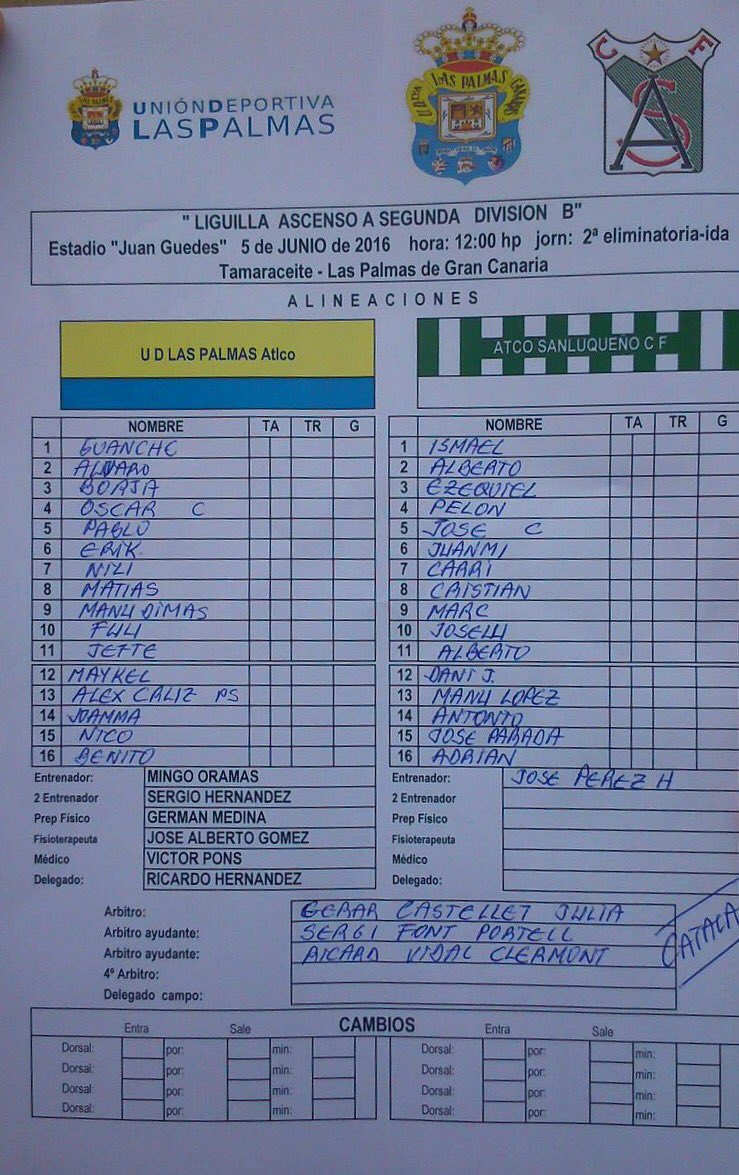 UNIÓN DEPORTIVA
LAS PALMAS
U.D. LAS PALMAS
C F
A S
" LIGUILLA ASCENSO A SEGUNDA DIVISION B"
Estadio "Juan Guedes" 5 de JUNIO de 2016 hora: 12:00 hp jorn: 2ª eliminatoria-ida
Tamaraceite - Las Palmas de Gran Canaria
ALINEACIONES
U D LAS PALMAS Atlco
NOMBRE TA TR G
1 GUANCHE
2 ALVARO
3 BORJA
4 OSCAR C
5 PABLO
6 ERIK
7 NILI
8 MATIAS
9 MANU DIMAS
10 FULI
11 JEFTE
12 MAYKEL
13 ALEX CALIZ PS
14 JOAMMA
15 NICO
16 BENITO
Entrenador: MINGO ORAMAS
2 Entrenador SERGIO HERNANDEZ
Prep Físico GERMAN MEDINA
Fisioterapeuta JOSE ALBERTO GOMEZ
Médico VICTOR PONS
Delegado: RICARDO HERNANDEZ
ATCO SANLUQUEÑO C F
NOMBRE TA TR G
1 ISMAEL
2 ALBERTO
3 EZEQUIEL
4 PELON
5 JOSE C
6 JUANMI
7 CARRI
8 CRISTIAN
9 MARC
10 JOSELU
11 ALBERTO
12 DANI J.
13 MANU LOPEZ
14 ANTONIO
15 JOSE PARADA
16 ADRIAN
Entrenador: JOSE PEREZ H
2 Entrenador
Prep Físico
Fisioterapeuta
Médico
Delegado:
Arbitro: GERAR CASTELLET JULIA
Arbitro ayudante: SERGI FONT PORTELL
Arbitro ayudante: RICARD VIDAL CLERMONT
4º Arbitro:
Delegado campo:
CATALA
CAMBIOS
Entra Sale
Dorsal: por: min:
Dorsal: por: min:
Dorsal: por: min:
Dorsal: por: min:
Entra Sale
Dorsal: por: min:
Dorsal: por: min:
Dorsal: por: min:
Dorsal: por: min: